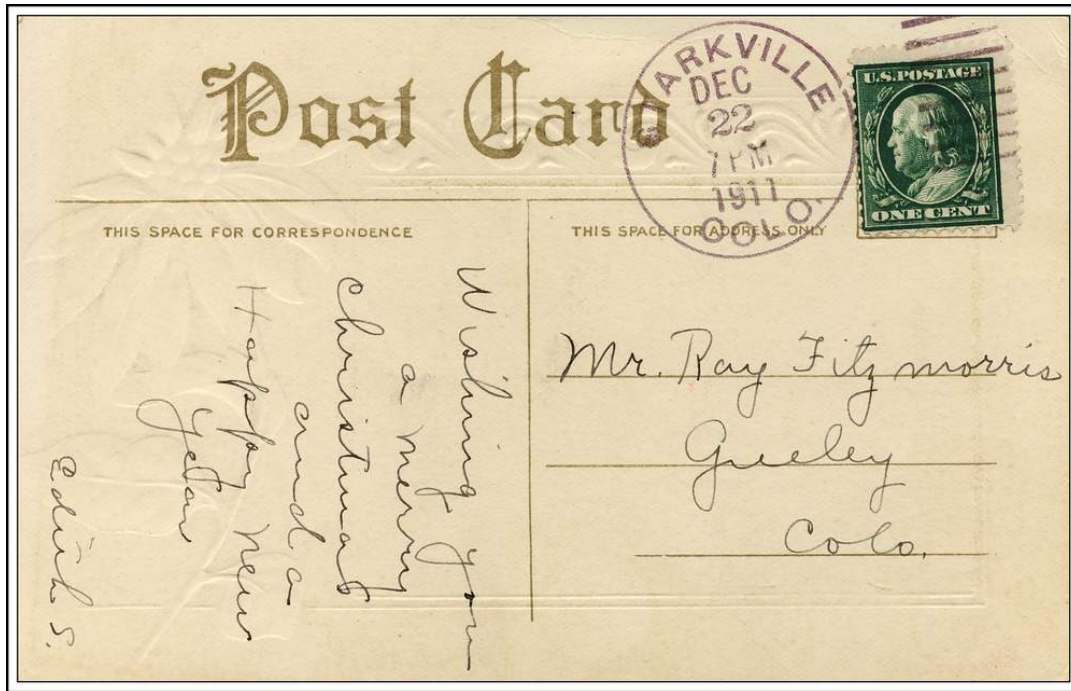 Post Card
STARKVILLE
DEC
22
7 PM
1911
COLO.
U.S. POSTAGE
ONE CENT
THIS SPACE FOR CORRESPONDENCE
THIS SPACE FOR ADDRESS ONLY
Wishing you
a merry
Christmas
and a
Happy New
Year
Edith S.
Mr. Ray Fitzmorris
Greeley
Colo.